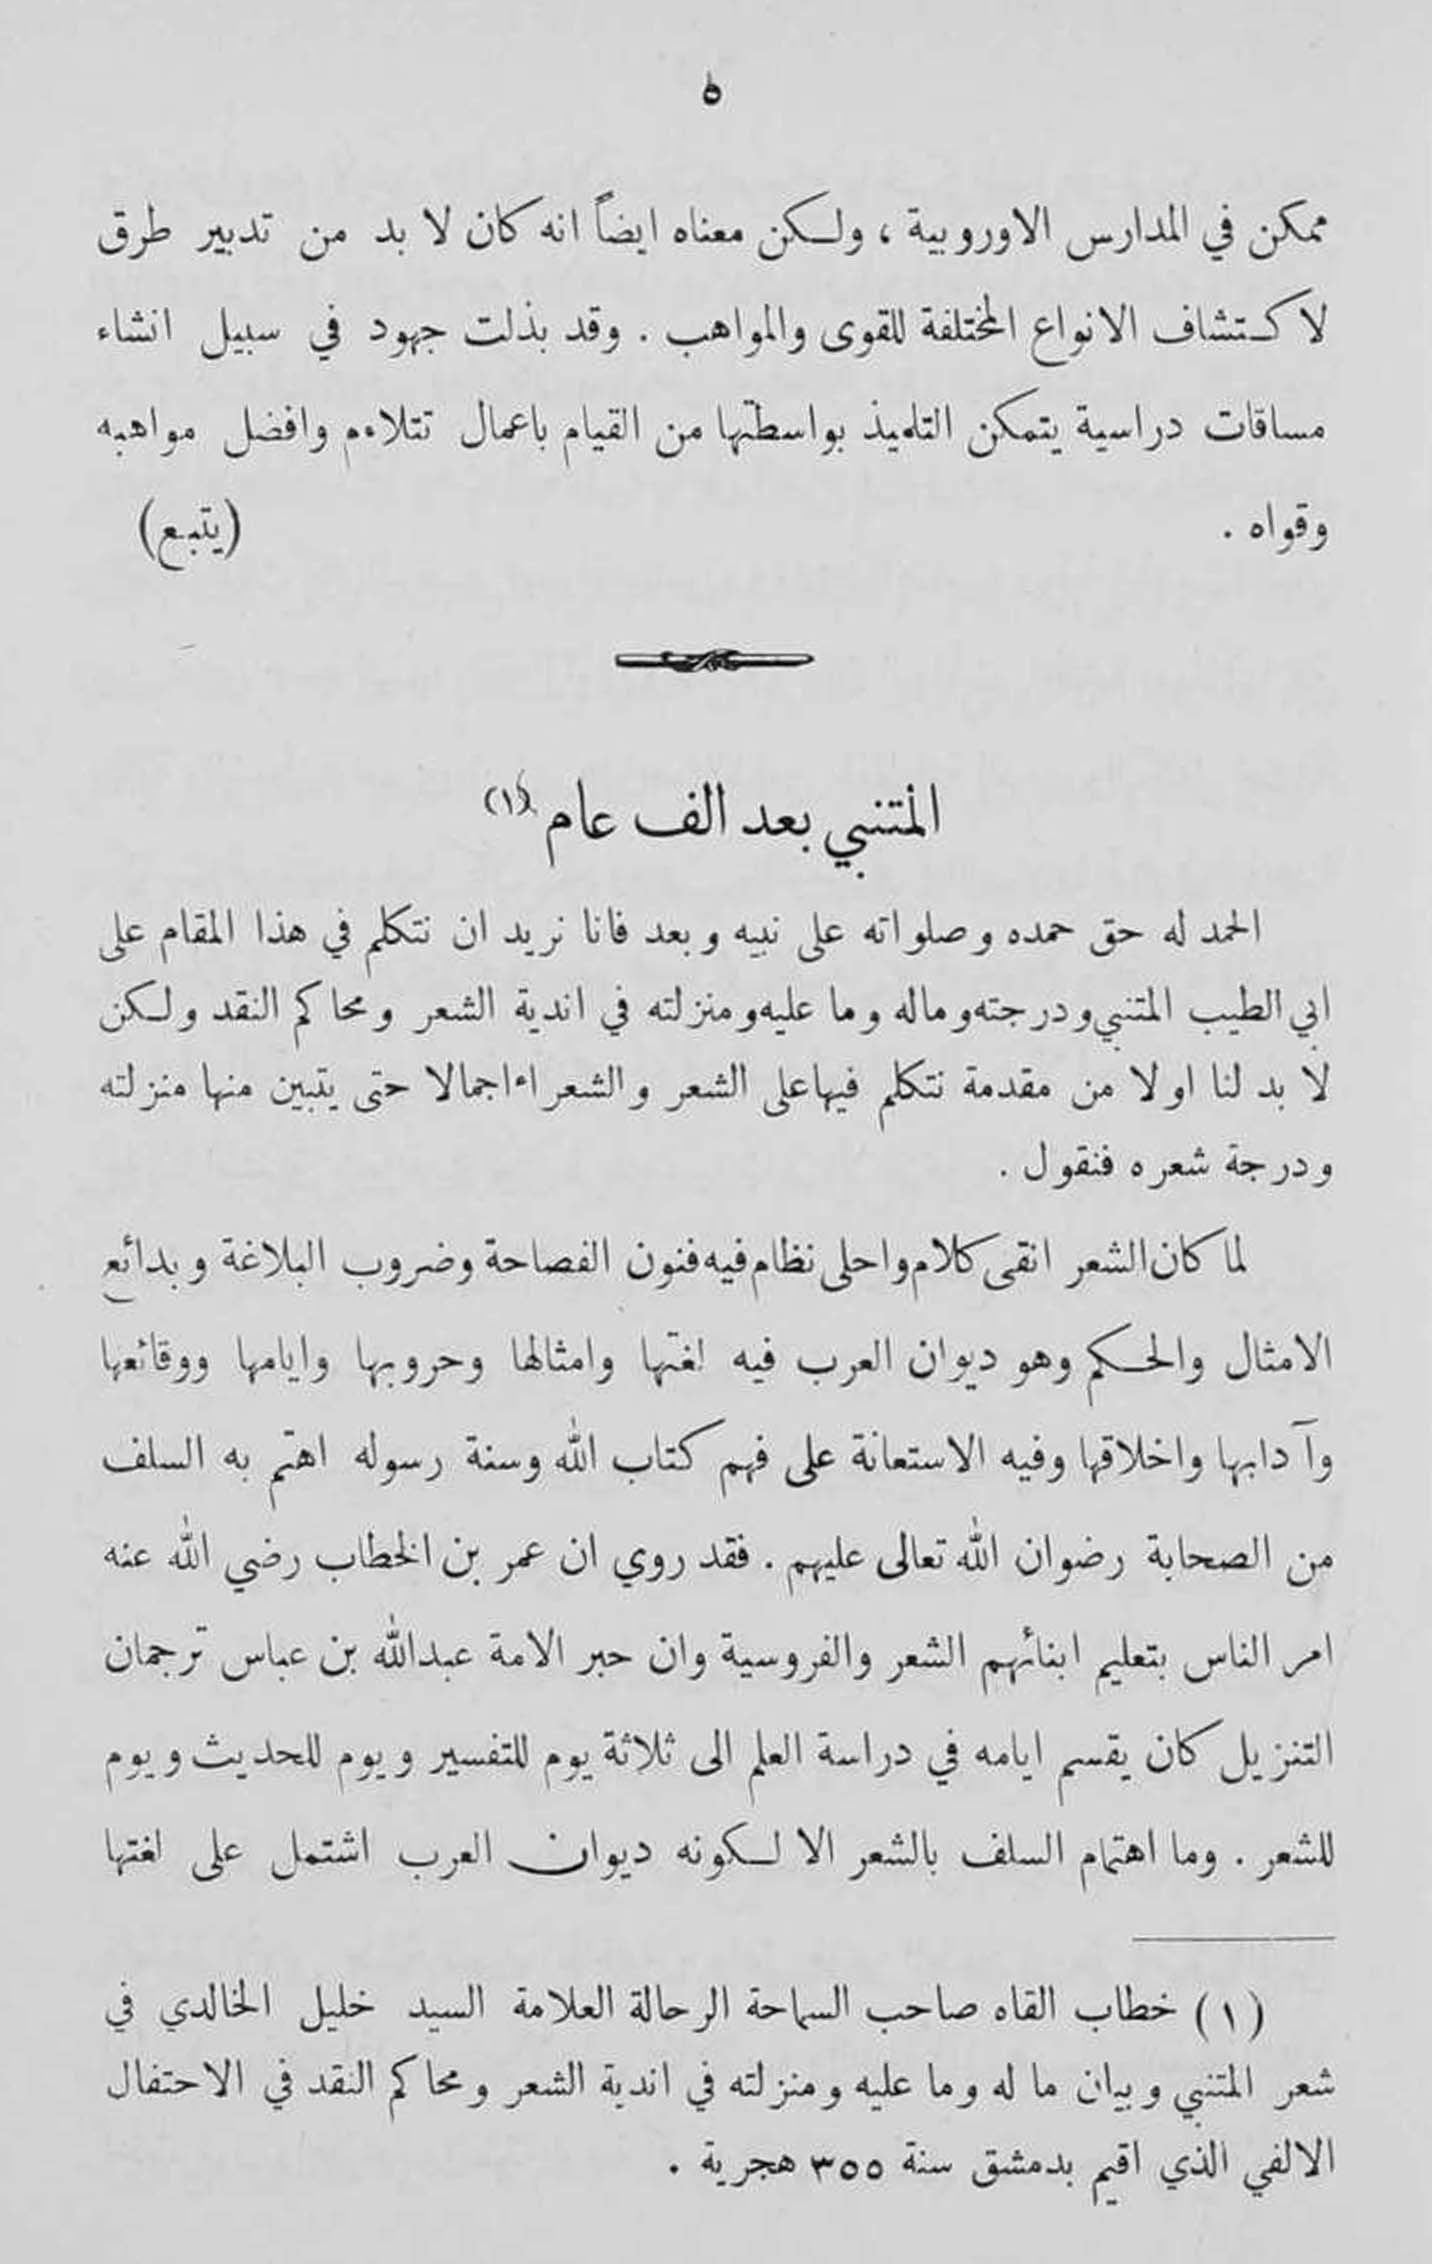 ٥
ممكن في المدارس الاوروبية ، ولكن معناه ايضاً انه كان لا بد من تدبير طرق
لاكتشاف الانواع المختلفة للقوى والمواهب . وقد بذلت جهود في سبيل انشاء
مساقات دراسية يتمكن التلميذ بواسطتها من القيام باعمال تتلاءم وافضل مواهبه
وقواه . (يتبع)
المتنبي بعد الف عام (١)
الحمد له حق حمده وصلواته على نبيه وبعد فانا نريد ان نتكلم في هذا المقام على
ابي الطيب المتنبي ودرجته وماله وما عليه ومنزلته في اندية الشعر ومحاكم النقد ولكن
لا بد لنا اولا من مقدمة نتكلم فيها على الشعر والشعراء اجمالا حتى يتبين منها منزلته
ودرجة شعره فنقول .
لما كان الشعر انقى كلام واحلى نظام فيه فنون الفصاحة وضروب البلاغة وبدائع
الامثال والحكم وهو ديوان العرب فيه لغتها وامثالها وحروبها وايامها ووقائعها
وآدابها واخلاقها وفيه الاستعانة على فهم كتاب الله وسنة رسوله اهتم به السلف
من الصحابة رضوان الله تعالى عليهم . فقد روي ان عمر بن الخطاب رضي الله عنه
امر الناس بتعليم ابنائهم الشعر والفروسية وان حبر الامة عبدالله بن عباس ترجمان
التنزيل كان يقسم ايامه في دراسة العلم الى ثلاثة يوم للتفسير ويوم للحديث ويوم
للشعر . وما اهتمام السلف بالشعر الا لكونه ديوان العرب اشتمل على لغتها
(١) خطاب القاه صاحب السماحة الرحالة العلامة السيد خليل الخالدي في
شعر المتنبي وبيان ما له وما عليه ومنزلته في اندية الشعر ومحاكم النقد في الاحتفال
الالفي الذي اقيم بدمشق سنة ٣٥٥ هجرية .